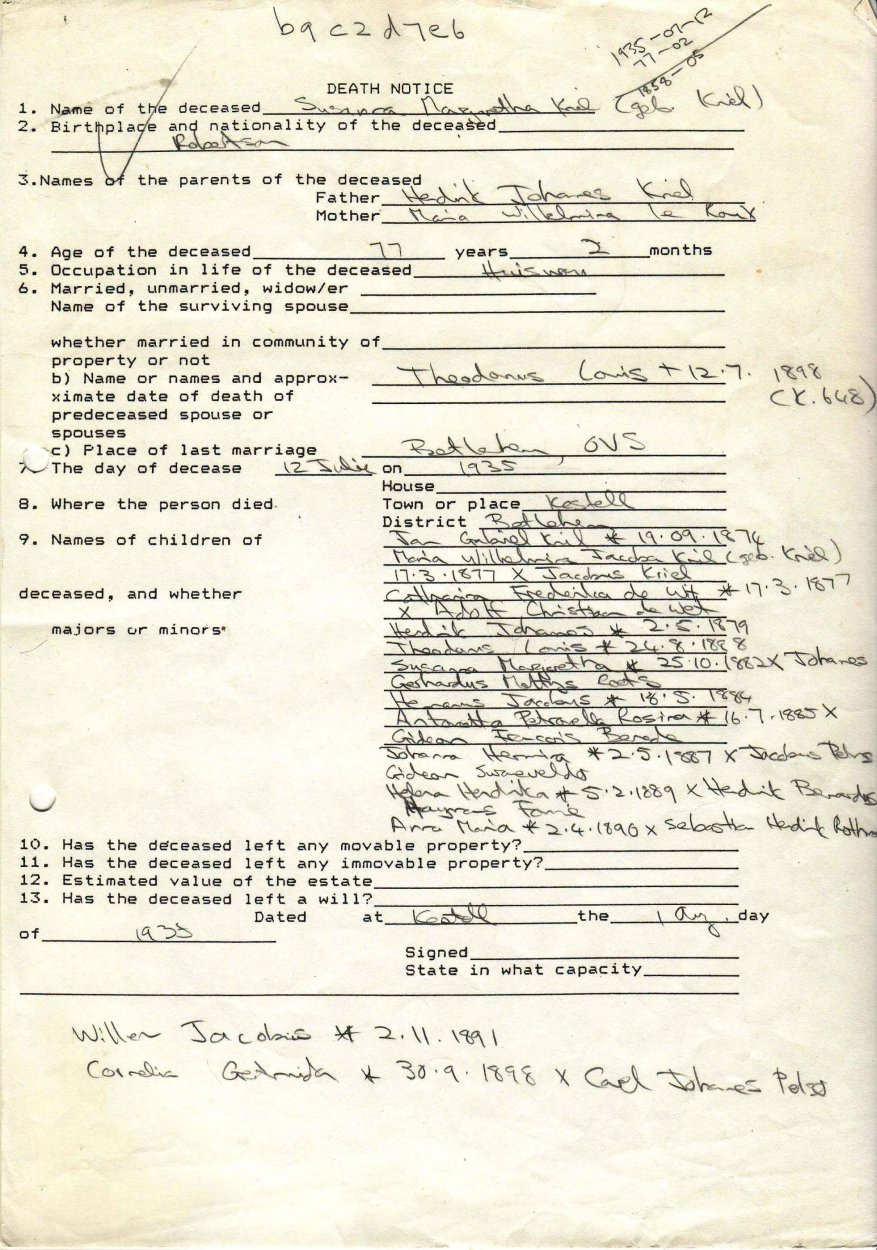 b9 c2 d7 e6
1935-07-12
77-02
1858-05
DEATH NOTICE
1. Name of the deceased Susanna Margaretha Kriel (geb. Kriel)
2. Birthplace and nationality of the deceased
Robertson
3.Names of the parents of the deceased
Father Hendrik Johannes Kriel
Mother Maria Wilhelmina le Roux
4. Age of the deceased 77 years 2 months
5. Occupation in life of the deceased Huisvrou
6. Married, unmarried, widow/er
Name of the surviving spouse
whether married in community of
property or not
b) Name or names and approx- Theodorus Louis + 12.7. 1898
ximate date of death of (K.648)
predeceased spouse or
spouses
c) Place of last marriage Betlehem, OVS
7. The day of decease 12 Julie on 1935
House
8. Where the person died Town or place Kestell
District Betlehem
9. Names of children of Jan Gabriel Kriel * 19.09.1874
Maria Wilhelmina Jacoba Kriel (geb. Kriel)
17.3.1877 X Jacobus Kriel
deceased, and whether Catharina Frederika de Wet * 17.3.1877
X Adolf Christiaan de Wet
majors or minors Hendrik Johannes * 2.5.1879
Theodorus Louis * 24.8.1888
Susanna Margaretha * 25.10.1882 X Johannes
Gerhardus Roets
Hermanus Jacobus * 18.5.1884
Petronella Rosina * 16.7.1885 X
Gideon Francois
Johanna * 2.5.1887 X Jacobus Petrus
Gideon
Helena Hendrika * 5.2.1889 X Hendrik Bernardus
Anna Maria * 2.4.1890 X Sebastian Hendrik
10. Has the deceased left any movable property?
11. Has the deceased left any immovable property?
12. Estimated value of the estate
13. Has the deceased left a will?
Dated at Kestell the 1 Aug. day
of 1935
Signed
State in what capacity
Willem Jacobus * 2.11.1891
Cornelia Gertruida * 30.9.1898 X Carel Johannes